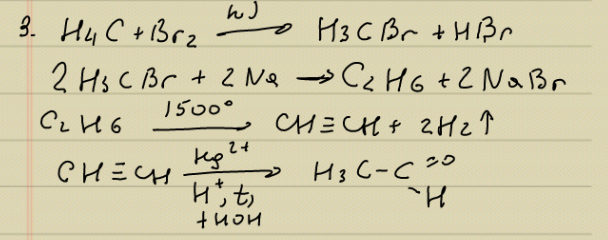 3. H4C + Br2 hν → H3CBr + HBr
2H3CBr + 2Na → C2H6 + 2NaBr
C2H6 1500° → CH≡CH + 2H2↑
CH≡CH Hg2+ → H3C-C=O
H+, t, -H
+HOH